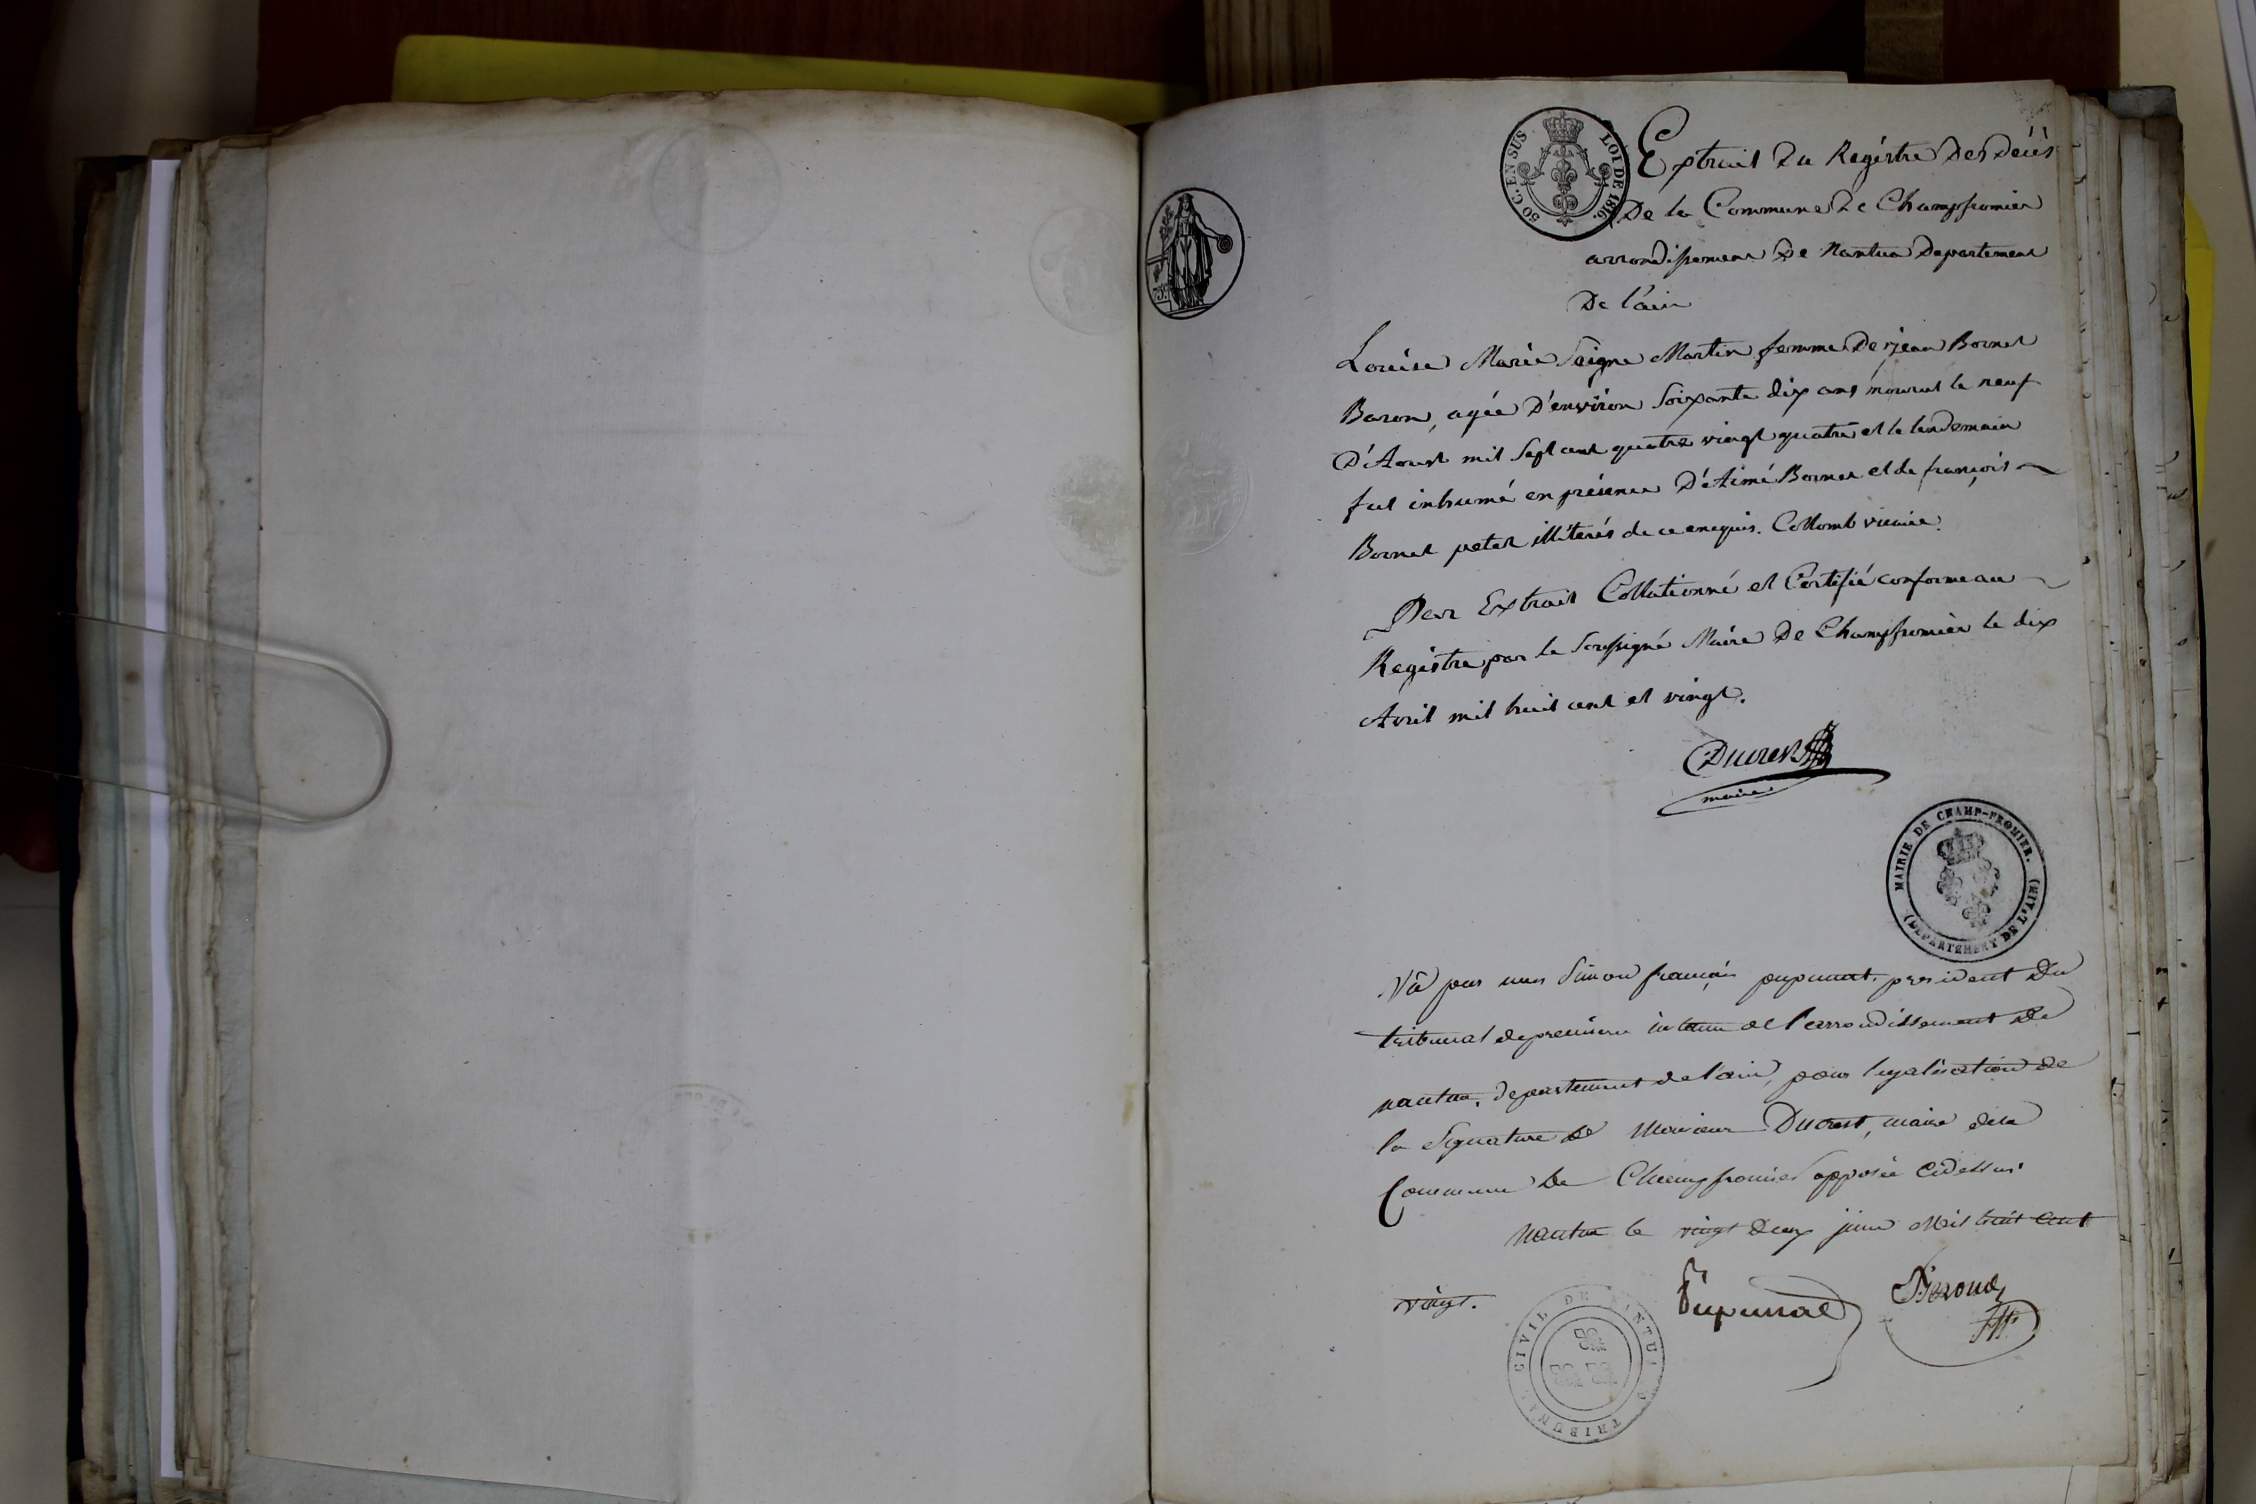 50 C. EN SUS
LOI DE 1816.
75c
Extrait Du Régistre Des Décès
De la Commune De Champfromier
arrondissement De Nantua Departement
De l'ain
Louise Marie Seigne Martin femme De jean Bornet
Baron, agée D'environ Soixante dix ans mourut le neuf
D'Aoust mil Sept cent quatre vingt quatre et le lendemain
fut inhumé en présence D'Aimé Bornet et de françois
Bornet illitérés de ce enquis. Collomb vicaire.
Pour Extrait Collationné et Certifié conforme au
Registre par le Soussigné Maire De Champfromier le dix
Avril mil huit cent et vingt.
Ducrest
maire
MAIRIE DE CHAMP-FROMIER.
(DEPARTEMENT DE L'AIN)
Vû par nous Simon françois pupunat, président Du
tribunal de premiere instance de l'arrondissement De
nantua, departement de l'ain, pour legalisation de
la Signature de Monsieur Ducrest, maire de la
Commune De Champfromier apposée cidessus
Nantua le vingt deux juin Mil huit cent
vingt.
Pupunat
TRIBUNAL CIVIL DE NANTUA